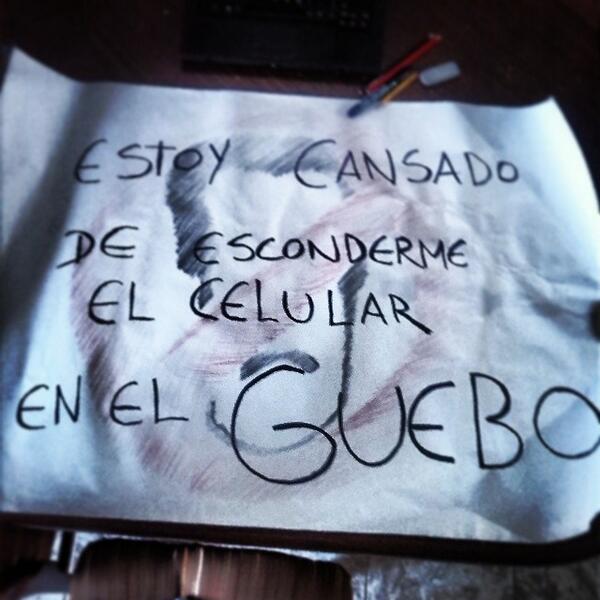 ESTOY CANSADO
DE ESCONDERME
EL CELULAR
EN EL GUEBO